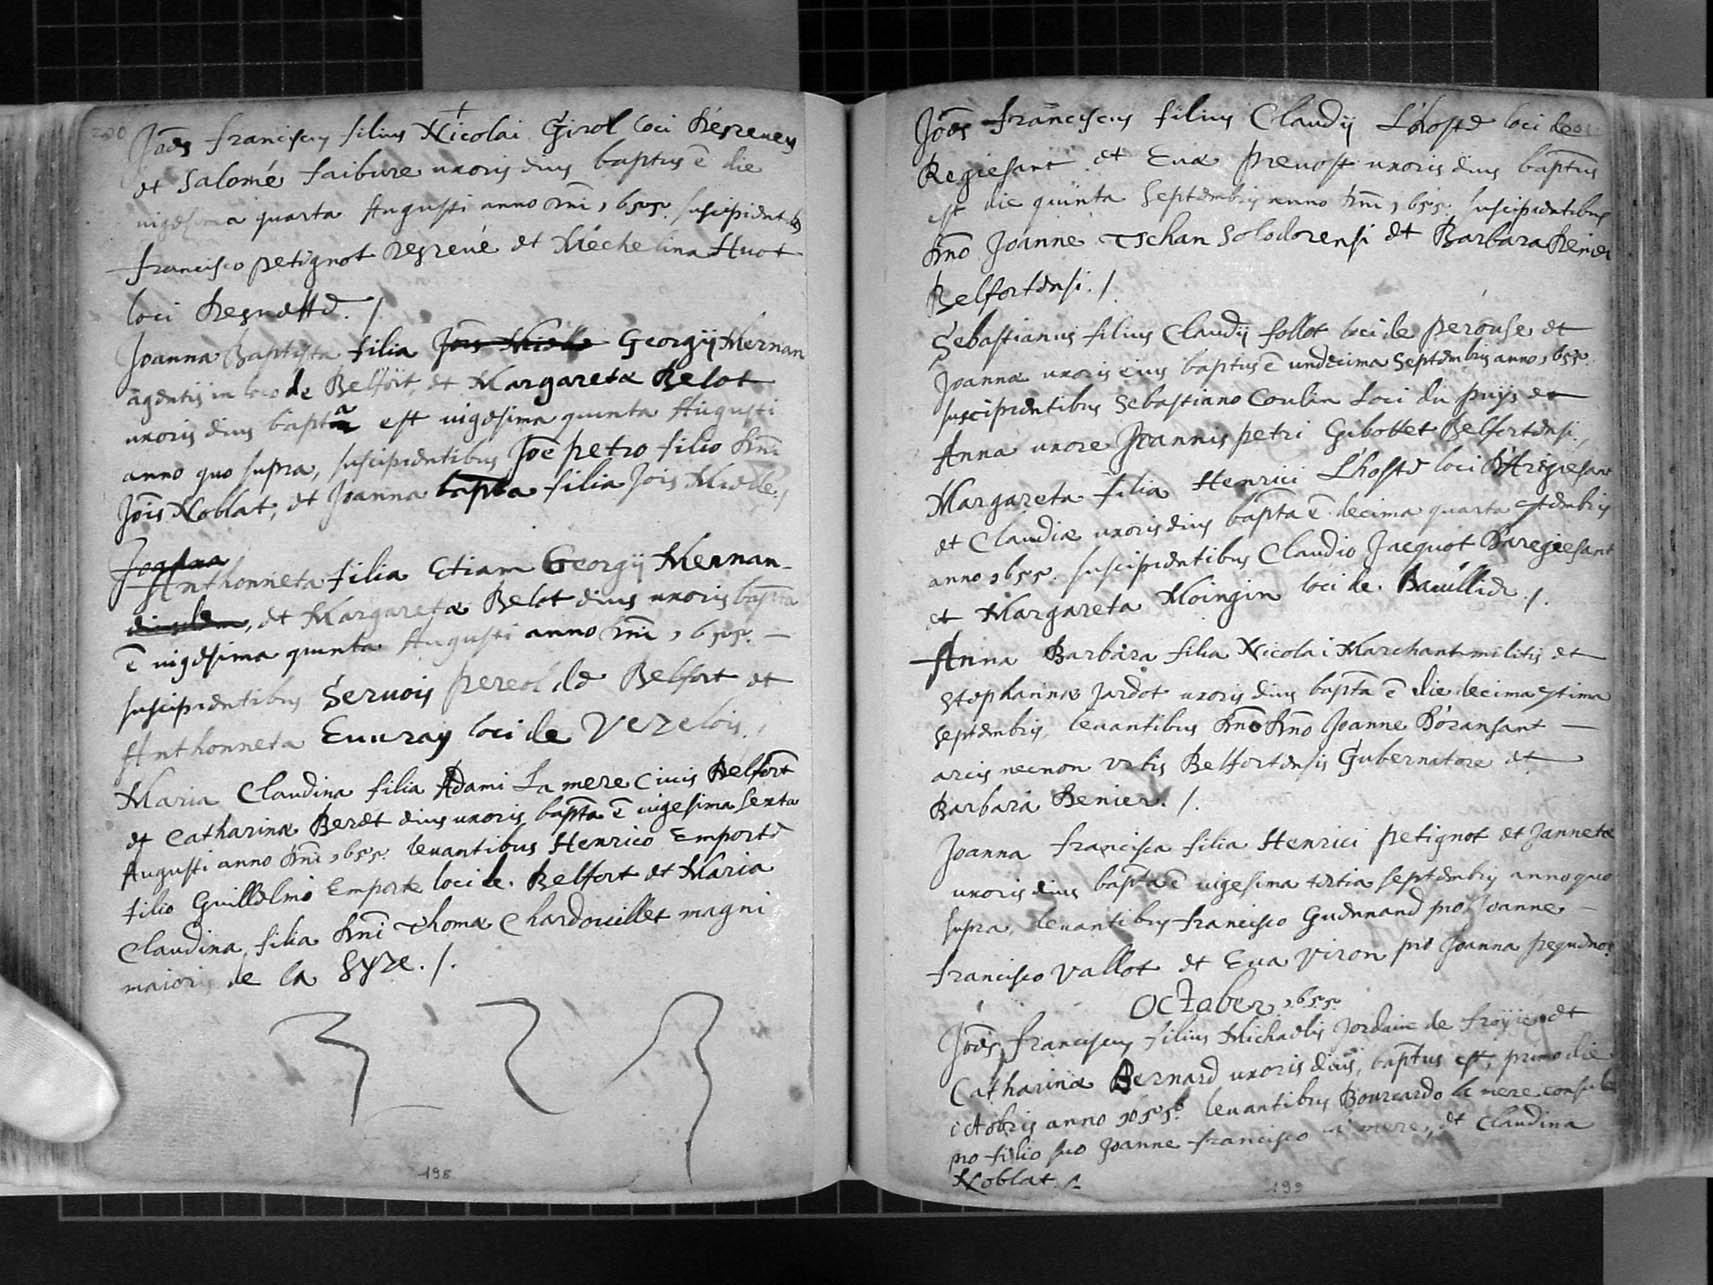 200
Joēs franciscus filius Nicolai Girol loci
et Salomé faibure uxoris eius baptus ē die
uigesima quarta Augusti anno Dni 1655. suscipientib9
francisco petignot et Méchelina Huot
loci
Joanna Baptista filia Georgij Mernan
agentis in loco de Belfort, et Margaretæ Belot
uxoris eius bapta est uigesima quinta Augusti
anno quo supra, suscipientibus Joē petro filio Dni
Joīs Noblat, et Joanna bapta filia Jois
Joanna
Anthonneta filia Etiam Georgij Mernan
, et Margaretæ Belot eius uxoris bapta
ē uigesima quinta Augusti anno Dni 1655. —
suscipientibus Seruois pereol de Belfort et
Anthonneta Euuray loci de Vezelois ./
Maria Claudina filia Adami La mere Ciuis Belfort
et Catharinæ Beret eius uxoris bapta ē uigesima sexta
Augusti anno Dni 1655. leuantibus Henrico Emporte
filio Guillelmi Emporte loci de. Belfort et Maria
Claudina filia Dni Thomæ Chardouillet magni
maioris de la
198
Joēs franciscus filius Claudij L'hoste loci
Regiesant et Euæ preuost uxoris eius baptus
est die quinta Septembris anno Dni 1655. suscipientibus
Dno Joanne Tschan Solodorensi et Barbara Renier
Belfortensi ./.
Sebastianus filius Claudij follot loci de perouse et
Joannæ uxoris eius baptus ē undecima Septembris anno 1655.
suscipientibus Sebastiano Coulin Loci du puys et
Anna uxore Joannis petri Gibottet Belfortensi ./
Margareta filia Henrici L'hoste loci
et Claudiæ uxoris eius bapta ē decima quarta 7tembris
anno 1655. suscipientibus Claudio Jacquot
et Margareta Moingin loci de. Bauilliers ./.
Anna Barbara filia Nicolai Marchant militis et
Stephaninæ Jardot uxoris eius bapta ē die decima 7tima
septembris, leuantibus Dno Dno Joanne
arcis necnon urbis Belfortensis Gubernatore et
Barbara Renier ./.
Joanna francisca filia Henrici petignot et Jannetæ
uxoris eius bapta ē uigesima tertia septembris anno quo
supra, leuantibus francisco Guennand pro Joanne —
francisco Vallot et Eua Viron pro Joanna
OCTober 1655.
Joēs franciscus filius Michaelis Jordain de froÿie et
Catharinæ Bernard uxoris eius, baptus est, primo die
octobris anno 1655. leuantibus Bourcardo la mere consule
pro filio suo Joanne francisco la mere, et Claudina
Noblat ./.
199